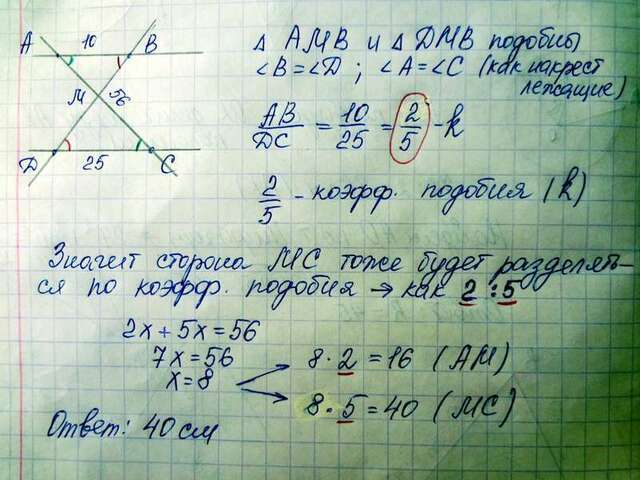 A 10 B
M 56
D 25 C
Δ AMB и Δ DMB подобны
∠B=∠D ; ∠A=∠C (как накрест
лежащие)
AB/DC = 10/25 = 2/5 - k
2/5 - коэфф. подобия (k)
Значит сторона MC тоже будет разделять-
ся по коэфф. подобия → как 2 : 5
2x + 5x = 56
7x = 56
x = 8
8 · 2 = 16 (AM)
8 · 5 = 40 (MC)
Ответ: 40 см